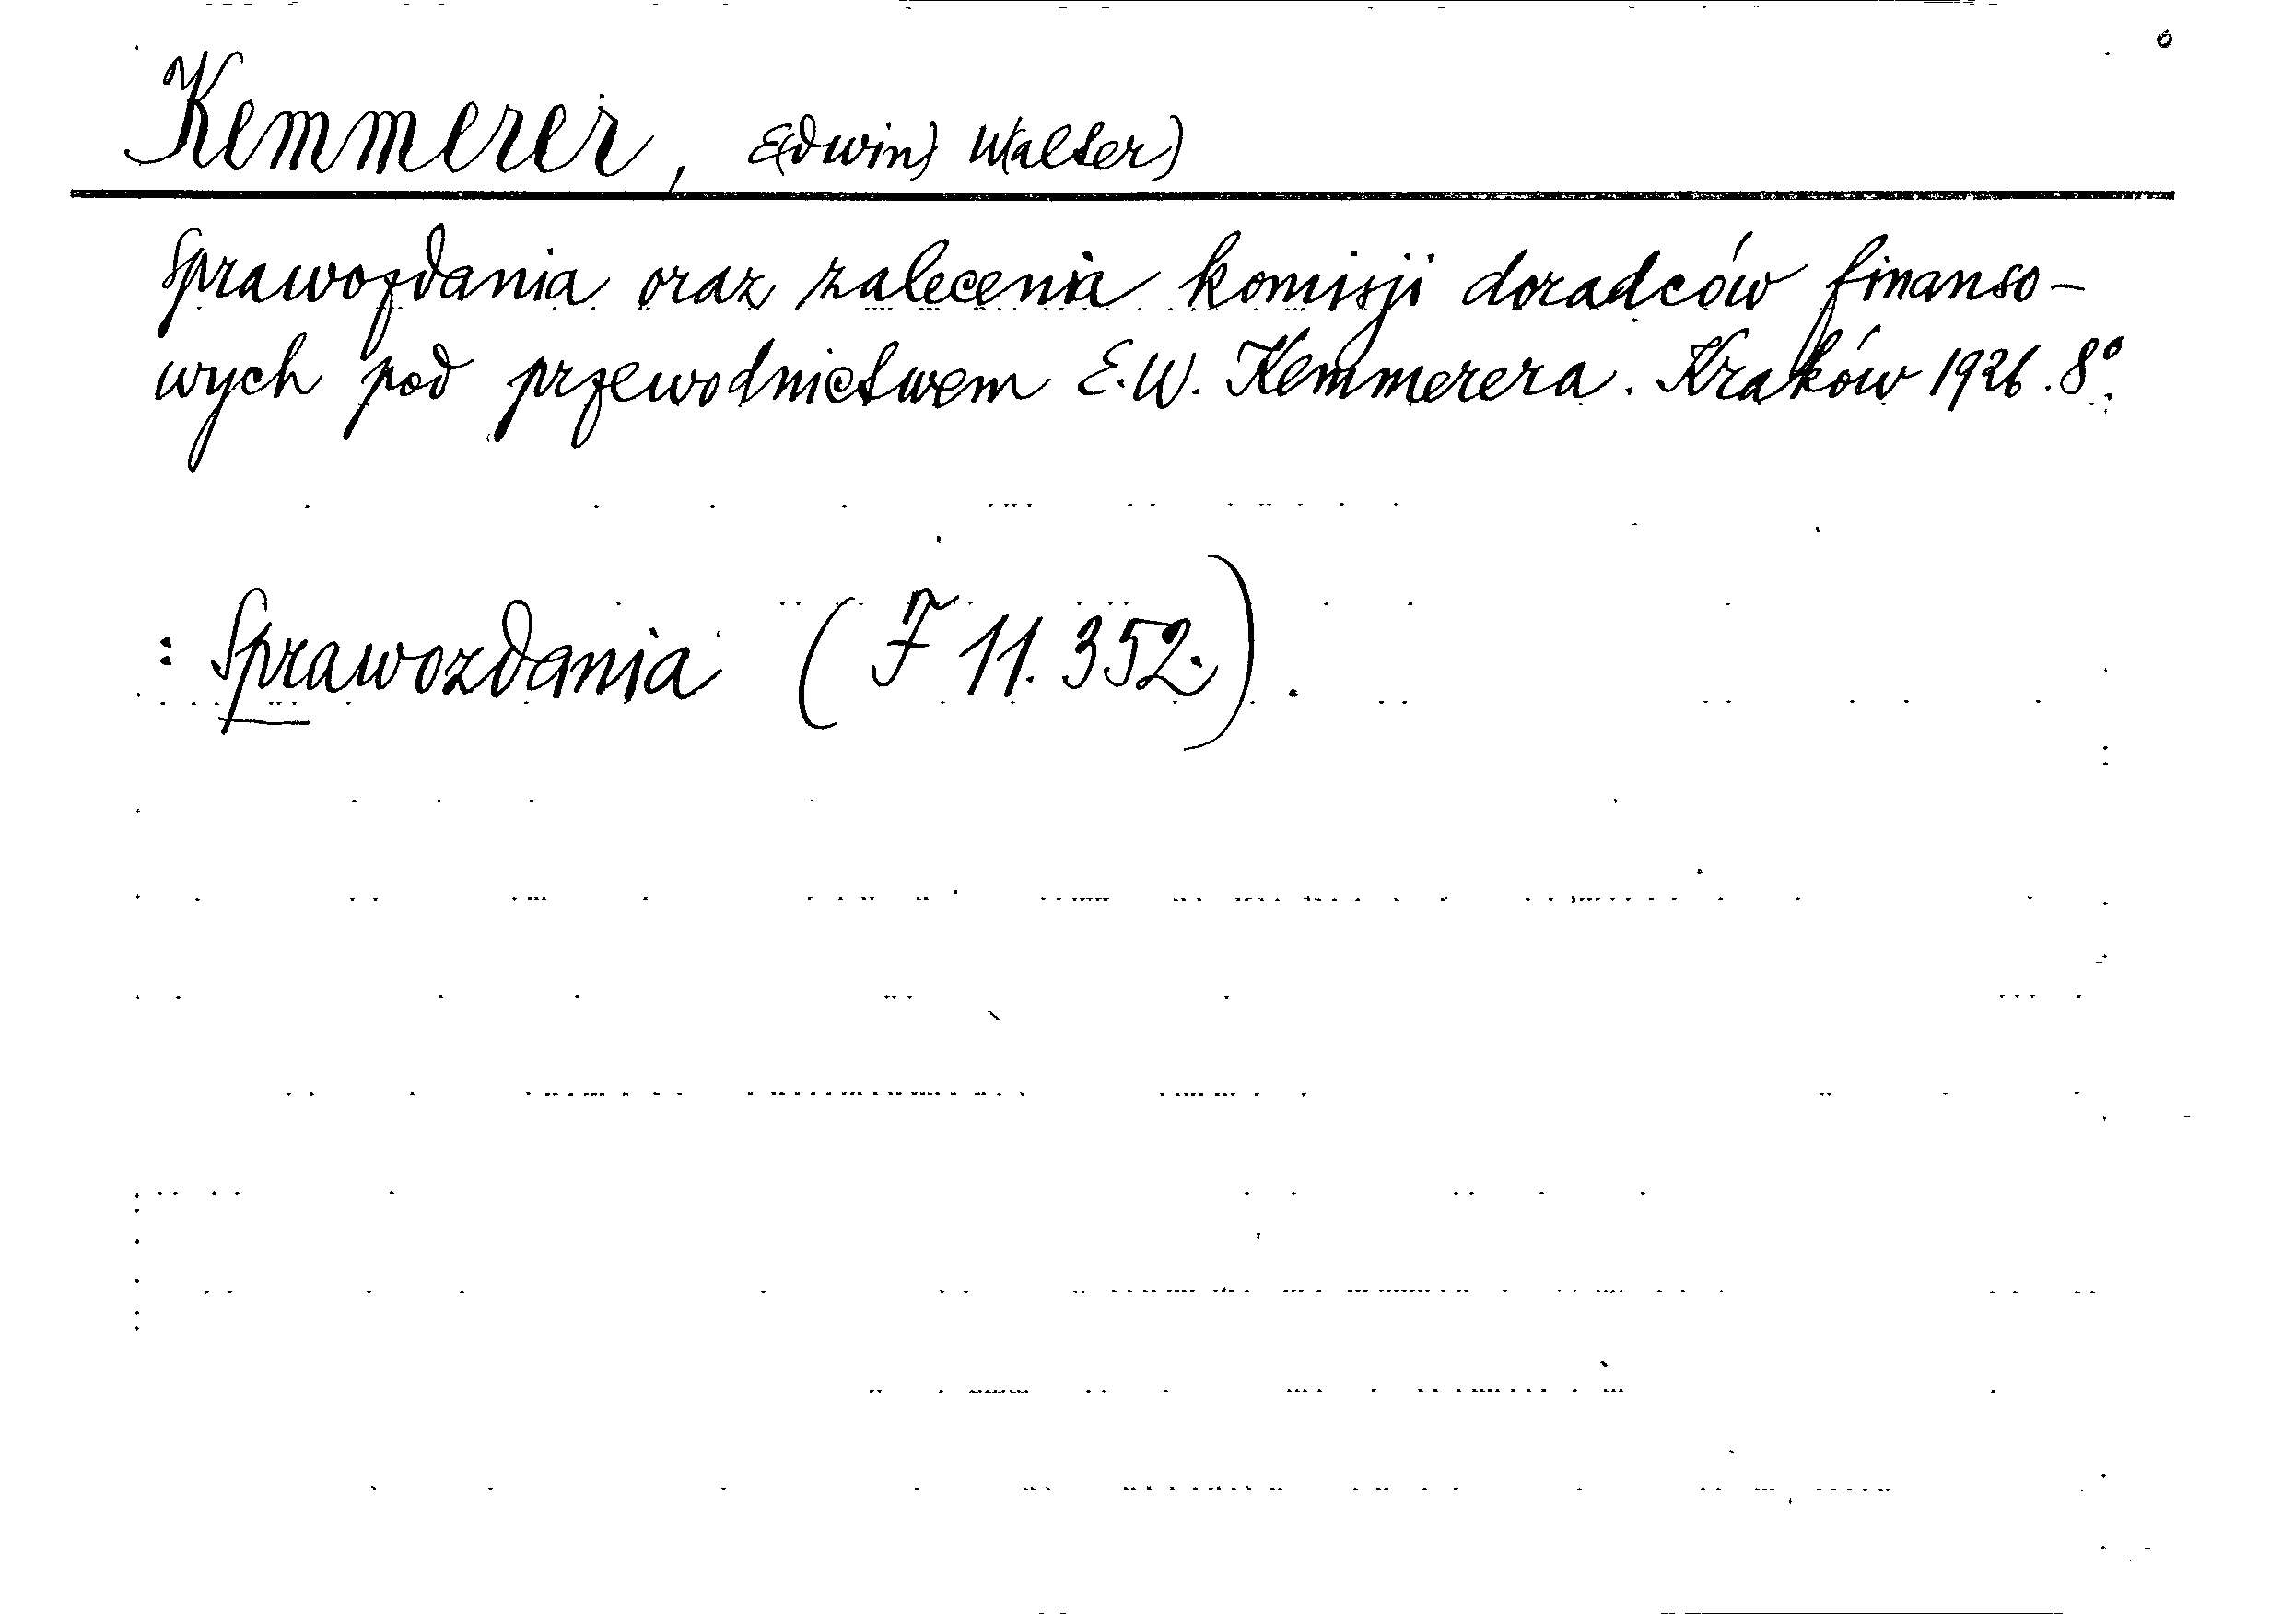 Kemmerer, E(dwin) W(alter)
Sprawozdania oraz zalecenia komisji doradców finanso-
wych pod przewodnictwem E. W. Kemmerera. Kraków 1926. 8°.
: Sprawozdania (F 11.352.).